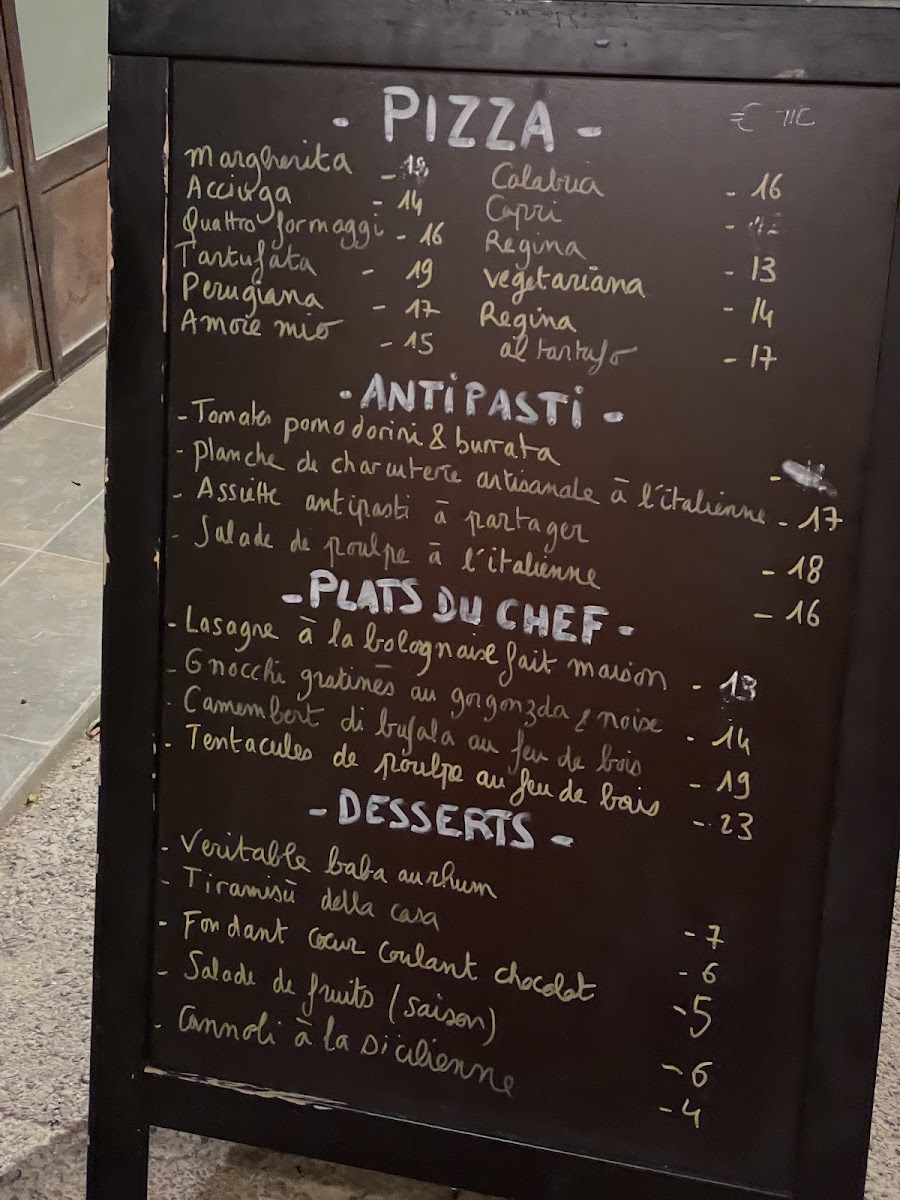 - PIZZA -
€ TTC
Margherita -
Acciuga - 14
Quattro formaggi - 16
Tartufata - 19
Perugiana - 17
Amore mio - 15
Calabria - 16
Capri -
Regina - 13
vegetariana - 14
Regina
al tartufo - 17
- ANTIPASTI -
- Tomates pomodorini & burrata -
- Planche de charcuterie artisanale à l'italienne - 17
- Assiette antipasti à partager - 18
- Salade de poulpe à l'italienne - 16
- PLATS DU CHEF -
- Lasagne à la bolognaise fait maison - 13
- Gnocchi gratinés au gorgonzola & noix - 14
- Camembert di bufala au feu de bois - 19
- Tentacules de poulpe au feu de bois - 23
- DESSERTS -
- Veritable baba au rhum - 7
- Tiramisù della casa - 6
- Fondant cœur coulant chocolat - 5
- Salade de fruits (saison) - 6
- Cannoli à la sicilienne - 4